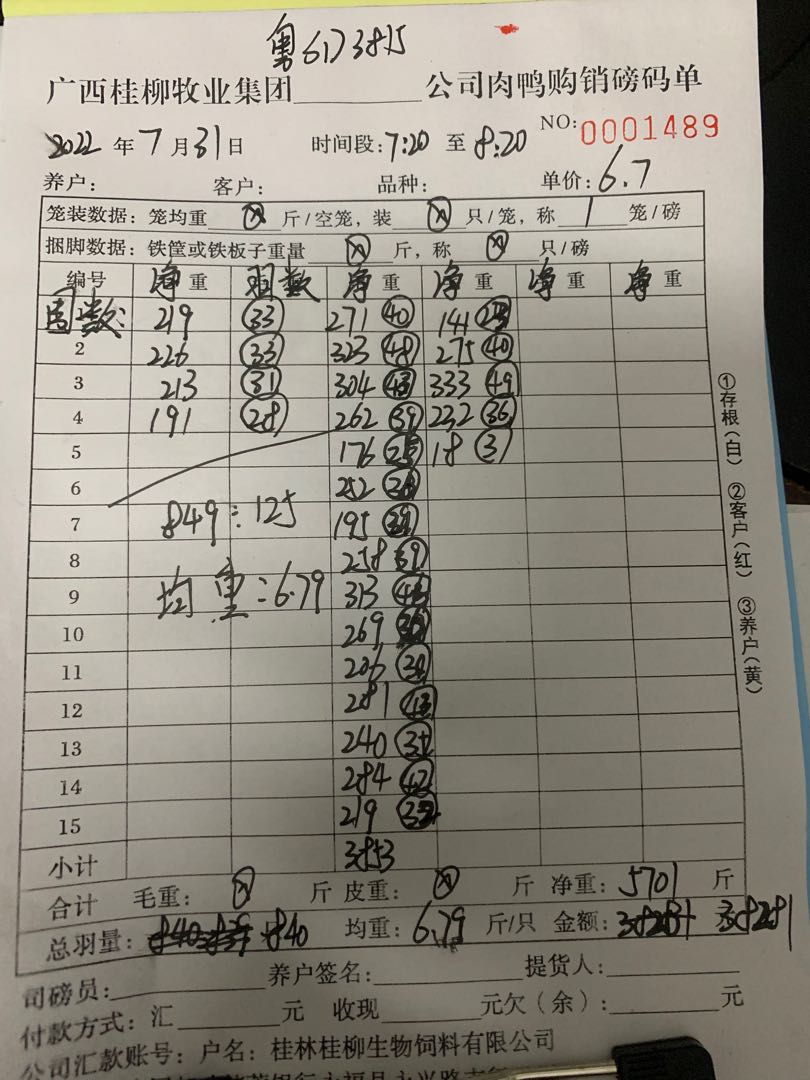 粤6173815
广西桂柳牧业集团________公司肉鸭购销磅码单
NO:0001489
2022 年 7 月 31 日 时间段:7:20 至 8:20
养户: 客户: 品种: 单价:6.7
笼装数据:笼均重 ⊗ 斤/空笼,装 ⊗ 只/笼,称 1 笼/磅
捆脚数据:铁筐或铁板子重量 ⊗ 斤,称 ⊗ 只/磅
编号 净重 羽数 净重 净重 净重 净重
219 33 271 40 141
2 226 33 323 48 275 40
3 213 31 304 43 333 49
4 191 28 262 39 232 36
5 176 25 18 3
6 252
7 849:125 195
8 258 39
9 均重:6.79 313
10 269
11 206
12 281 43
13 240
14 284 42
15 219
小计 3853
合计 毛重:⊗ 斤 皮重:⊗ 斤 净重:5701 斤
总羽量: 840 均重:6.79 斤/只 金额: 38281
司磅员: 养户签名: 提货人:
付款方式:汇 元 收现 元欠(余): 元
公司汇款账号:户名:桂林桂柳生物饲料有限公司
①存根(白) ②客户(红) ③养户(黄)